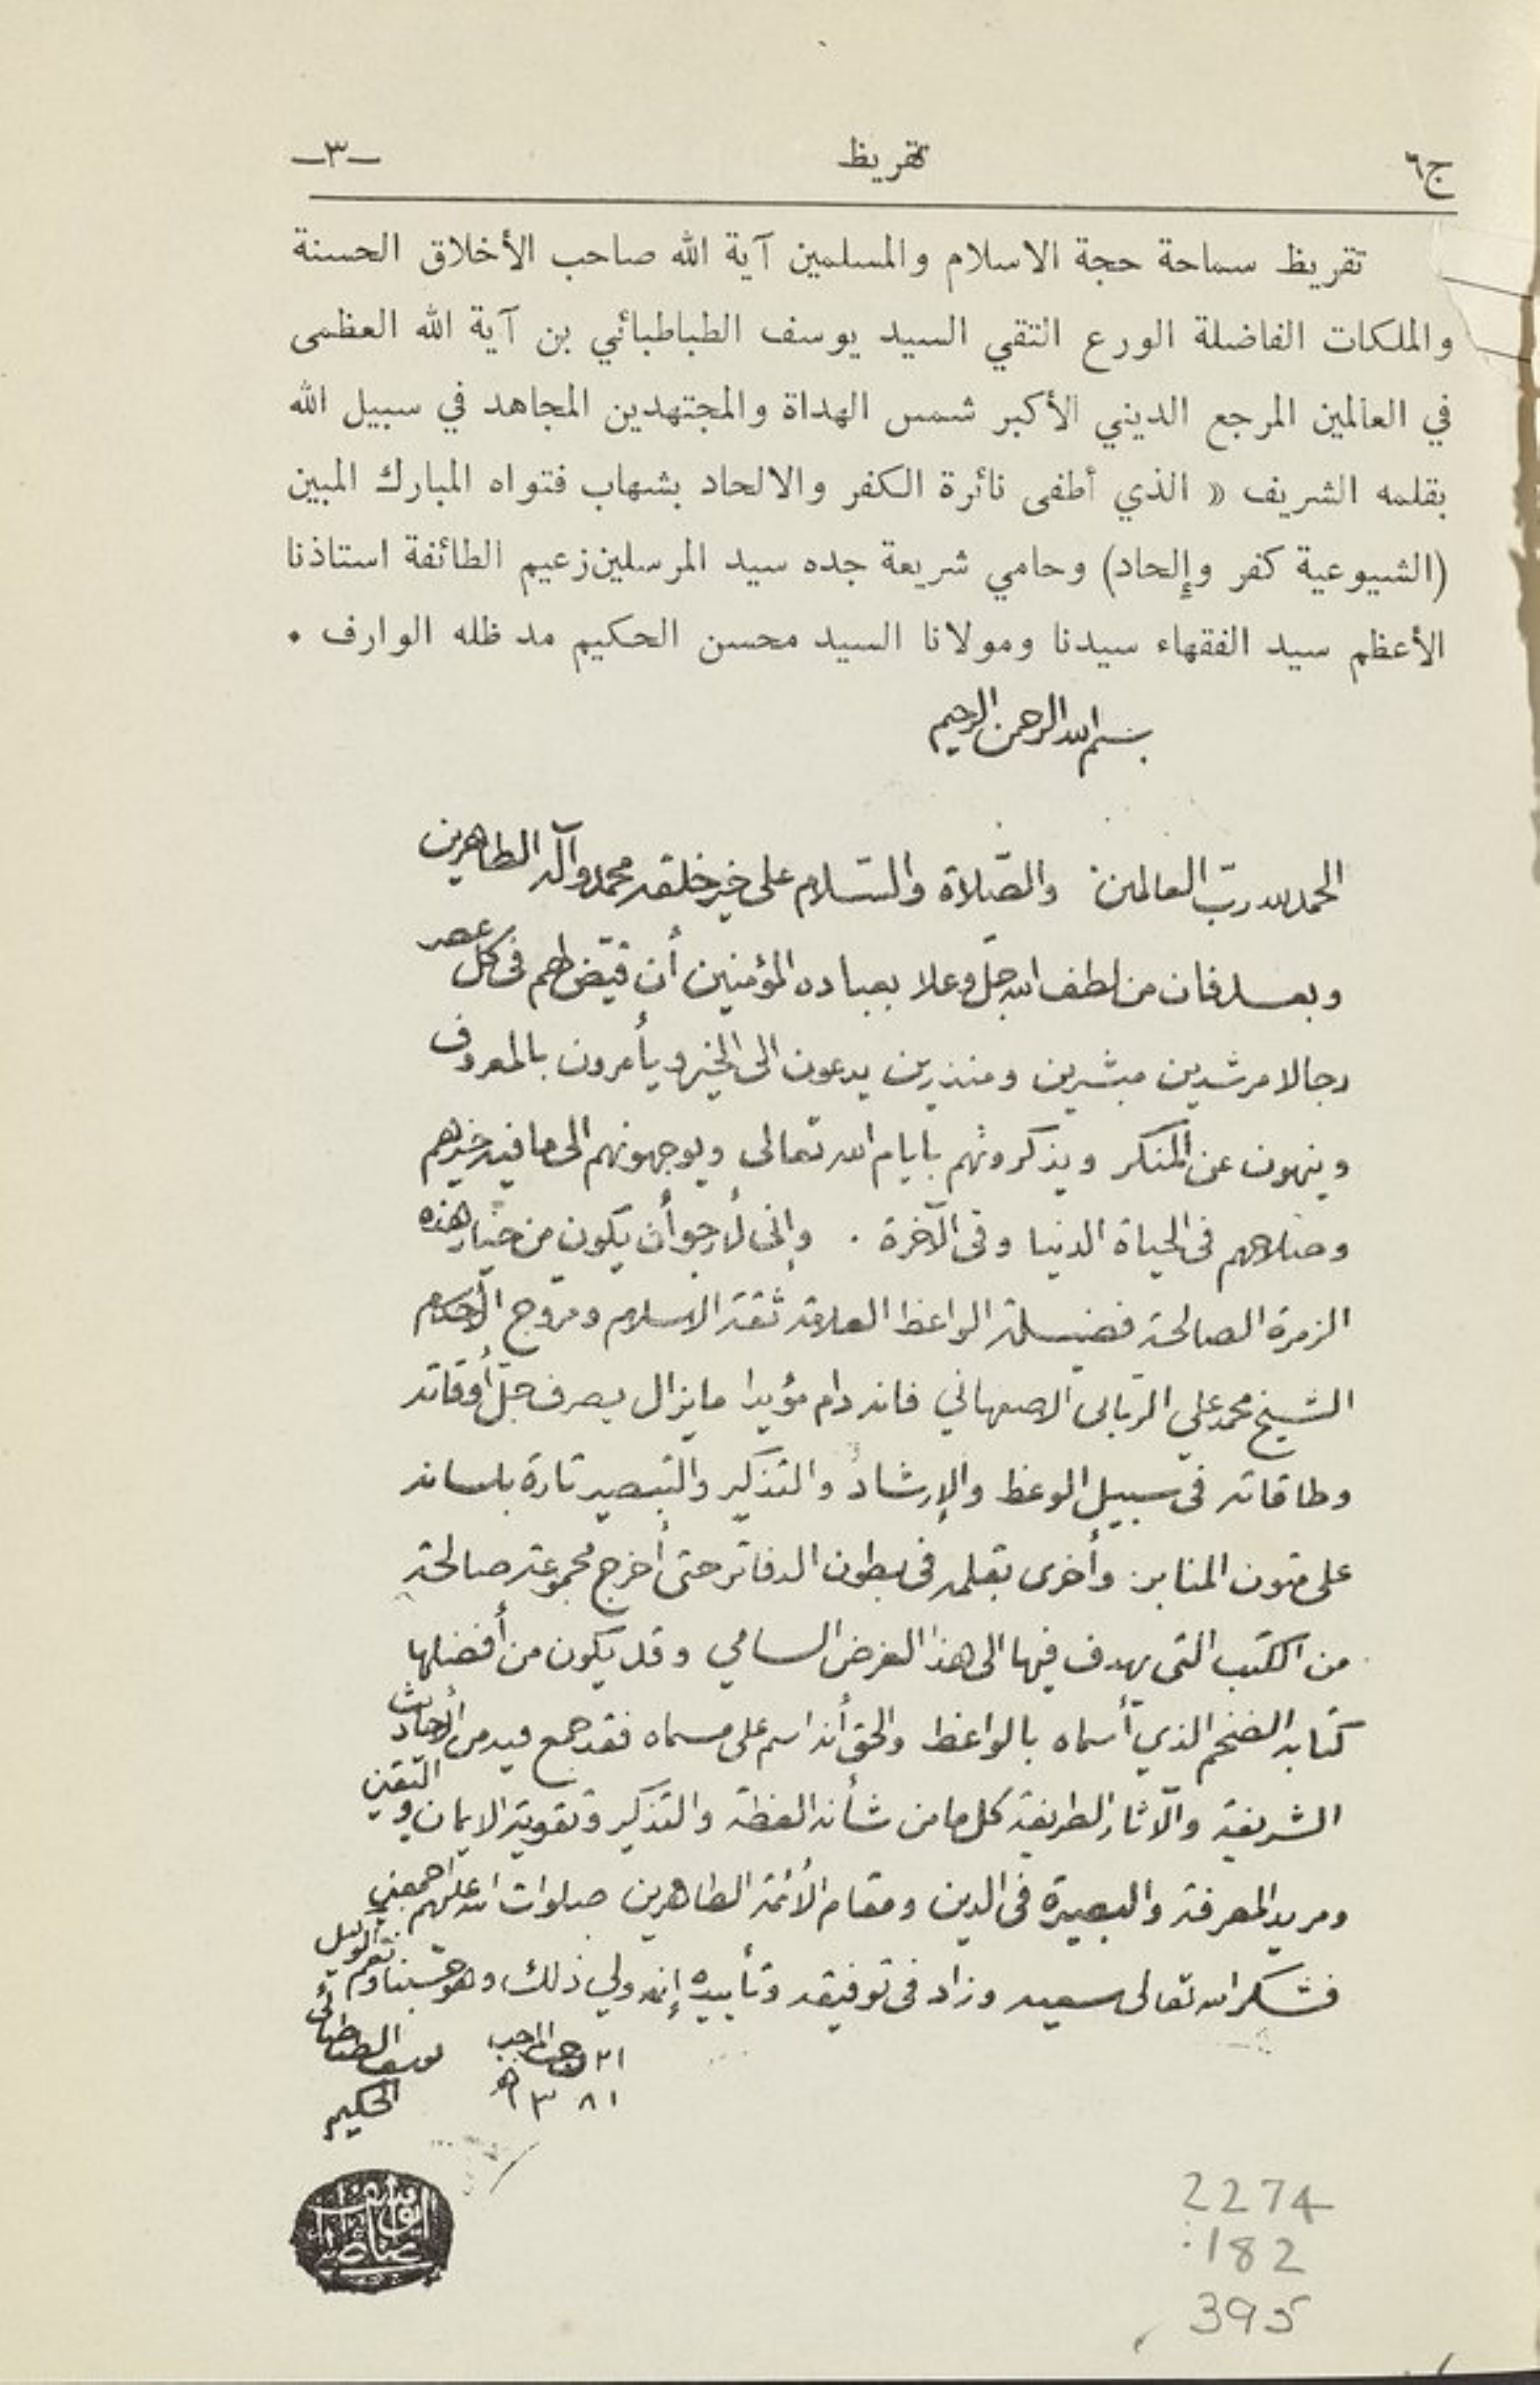 ج٦ تقريظ —٣—
تقريظ سماحة حجة الاسلام والمسلمين آية الله صاحب الأخلاق الحسنة
والملكات الفاضلة الورع التقي السيد يوسف الطباطبائي بن آية الله العظمى
في العالمين المرجع الديني الأكبر شمس الهداة والمجتهدين المجاهد في سبيل الله
بقلمه الشريف « الذي أطفى نائرة الكفر والالحاد بشهاب فتواه المبارك المبين
(الشيوعية كفر وإلحاد) وحامي شريعة جده سيد المرسلين زعيم الطائفة استاذنا
الأعظم سيد الفقهاء سيدنا ومولانا السيد محسن الحكيم مد ظله الوارف .
بسم الله الرحمن الرحيم
الحمد لله ربّ العالمين والصّلاة والسّلام على خير خلقه محمد وآله الطاهرين
وبعد فان من لطف الله جلّ وعلا بعباده المؤمنين أن قيّض لهم فى كل عصر
رجالا مرشدين مبشرين ومنذرين يدعون الى الخير ويأمرون بالمعروف
وينهون عن المنكر ويذكرونهم بايام الله تعالى ويوجهونهم الى ما فيه خيرهم
وصلاحهم فى الحياة الدنيا وفى الآخرة . وإنى لأرجو أن يكون من خيار هذه
الزمرة الصالحة فضيلة الواعظ العلامة ثقة الاسلام ومروج الأحكام
الشيخ محمد علي الربانى الاصفهاني فانه دام مؤيدا مايزال يصرف جلّ أوقاته
وطاقاته فى سبيل الوعظ والإرشاد والتذكير والتبصير تارة بلسانه
على متون المنابر وأخرى بقلمه فى بطون الدفاتر حتى أخرج مجموعة صالحة
من الكتب التى يهدف فيها الى هذا الغرض السامي وقد يكون من أفضلها
كتابه الضخم الذي أسماه بالواعظ والحق أنه اسم على مسماه فقد جمع فيه من الأحاديث
الشريفة والآثار الطريفة كل ما من شأنه العظة والتذكير وتقوية الايمان واليقين
ومريد المعرفة والبصيرة فى الدين ومقام الأئمة الطاهرين صلوات الله عليهم اجمعين
فشكر الله تعالى سعيه وزاد فى توفيقه وتأييده إنه ولي ذلك، وهو حسبنا ونعم الوكيل
٢١ رجب المرجب يوسف الطباطبائي
١٣٨١ هـ الحكيم
2274
.182
395